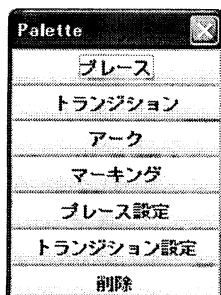 Palette
プレース
トランジション
アーク
マーキング
プレース設定
トランジション設定
削除